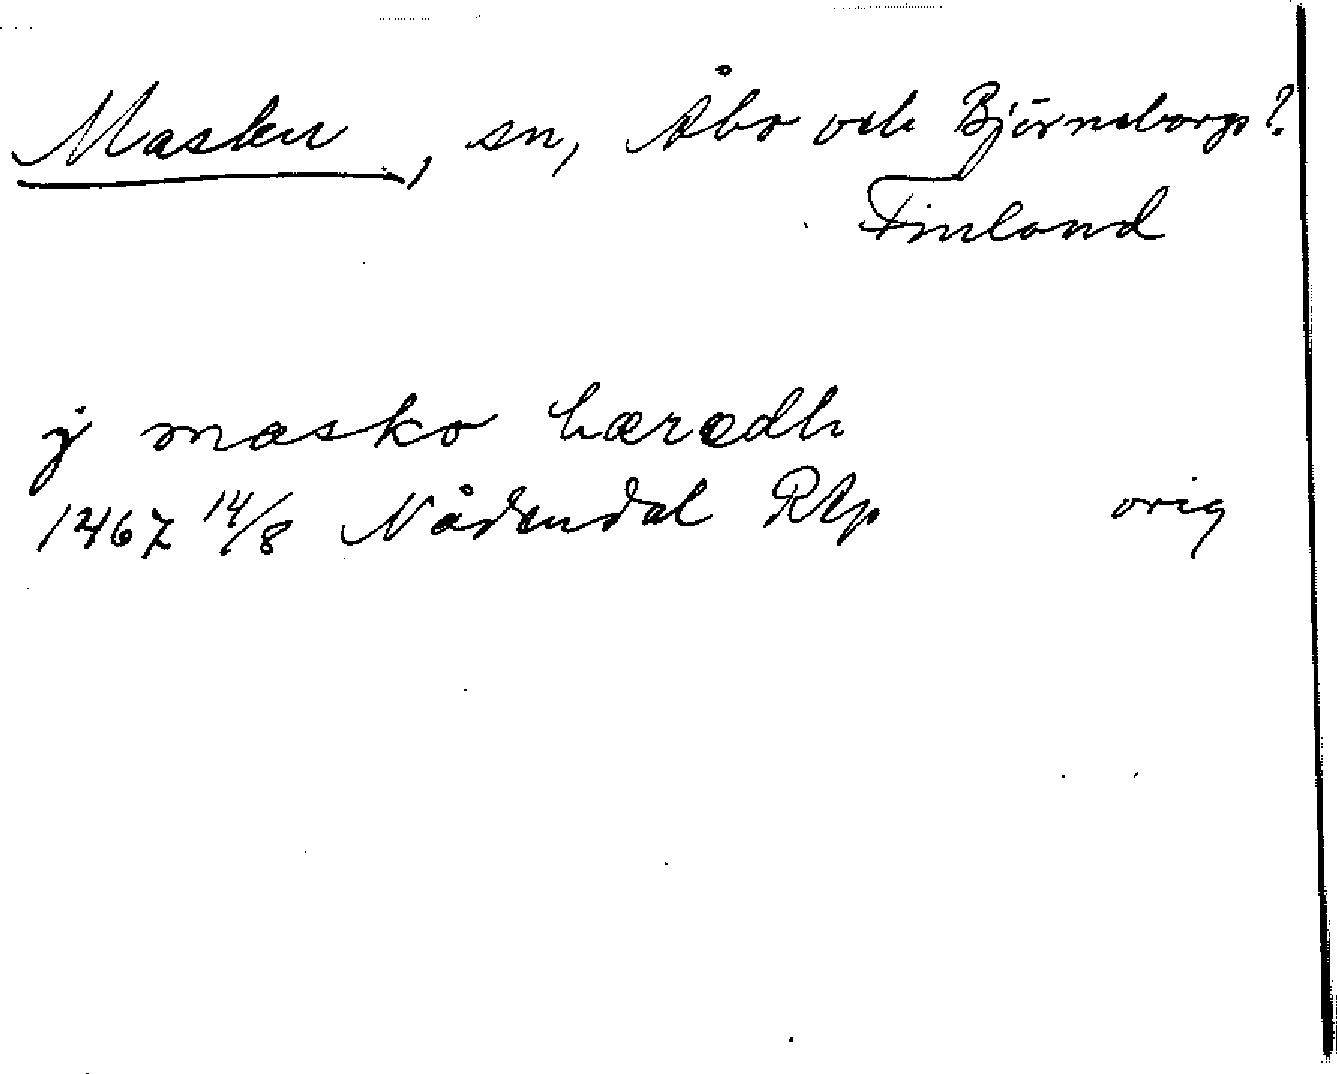 Masku, sn, Åbo och Björneborgs?
Finland
j masko hæredh
1467 14/8 Nådendal RAp orig